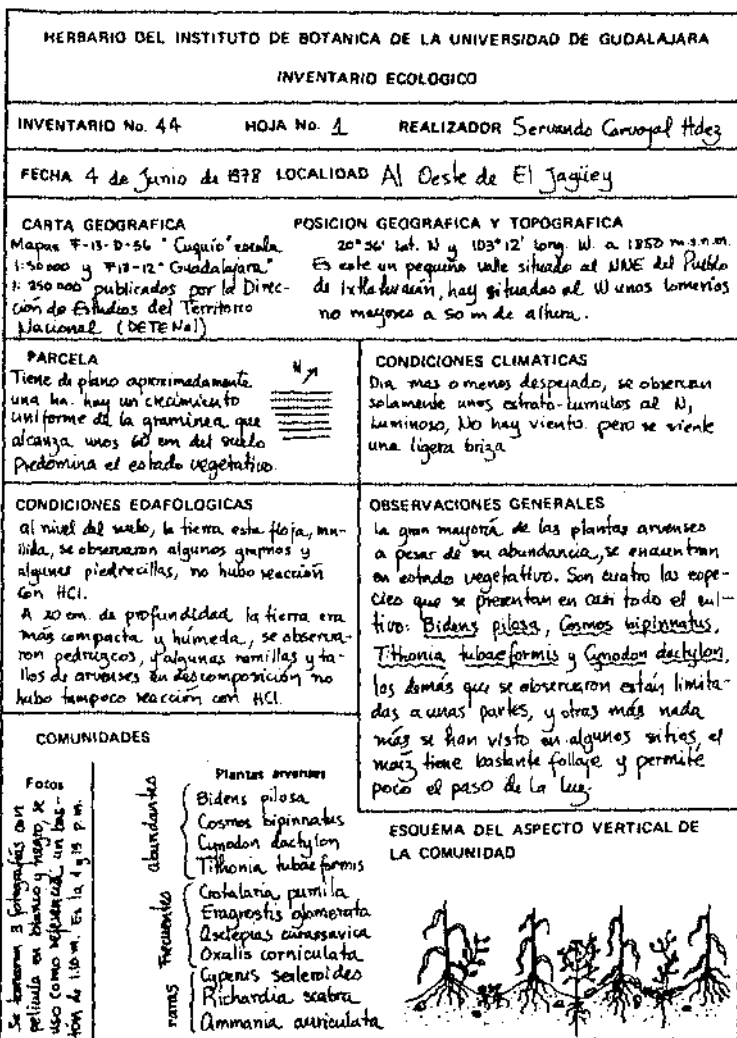 HERBARIO DEL INSTITUTO DE BOTANICA DE LA UNIVERSIDAD DE GUDALAJARA
INVENTARIO ECOLOGICO
INVENTARIO No. 44 HOJA No. 1 REALIZADOR Servando Carvajal Hdez
FECHA 4 de Junio de 1978 LOCALIDAD Al Oeste de El Jagüey
CARTA GEOGRAFICA
Mapas F-13-D-56 "Cuquio" escala
1:50000 y F13-12 "Guadalajara"
1: 250 000 publicados por la Direc-
ción de Estudios del Territorio
Nacional (DETENal)
POSICION GEOGRAFICA Y TOPOGRAFICA
20°56' Lat. N y 103°12' Long. W. a 1850 m.s.n.m.
Es este un pequeño valle situado al NNE del Pueblo
de Ixtlahuacán, hay situados al W unos lomerios
no mayores a 50 m de altura.
PARCELA
Tiene de plano aproximadamente
una ha. hay un crecimiento
uniforme de la graminea que
alcanza unos 60 cm del suelo
Predomina el estado vegetativo.
N
CONDICIONES CLIMATICAS
Dia mas o menos despejado, se observan
solamente unos estrato-cumulos al N,
Luminoso, No hay viento. pero se siente
una ligera briza
CONDICIONES EDAFOLOGICAS
al nivel del suelo, la tierra esta floja, mu-
llida, se observaron algunos grumos y
algunas piedrecillas, no hubo reacción
con HCl.
A 20 cm. de profundidad la tierra era
más compacta y húmeda, se observa-
ron pedruzcos, y algunas ramillas y ta-
llos de arvenses en descomposición no
hubo tampoco reacción con HCl.
OBSERVACIONES GENERALES
La gran mayoría de las plantas arvenses
a pesar de su abundancia, se encuentran
en estado vegetativo. Son cuatro las espe-
cies que se presentan en casi todo el cul-
tivo: Bidens pilosa, Cosmos bipinnatus,
Tithonia tubaeformis y Cynodon dactylon,
las demás que se observaron están limita-
das a unas partes, y otras más nada
más se han visto en algunos sitios, el
maiz tiene bastante follaje y permite
poco el paso de la luz.
COMUNIDADES
Fotos
Se tomaron 3 fotografías con
pelicula en blanco y negro, se
uso como referencia un bas-
tón de 1.10 m. Es la 1 y 15 P.M.
Plantas arvenses
abundantes
Bidens pilosa
Cosmos bipinnatus
Cynodon dactylon
Tithonia tubaeformis
Frecuentes
Crotalaria pumila
Eragrostis glomerata
Asclepias curassavica
Oxalis corniculata
raras
Cyperus sesleroides
Richardia scabra
Ammania auriculata
ESQUEMA DEL ASPECTO VERTICAL DE
LA COMUNIDAD